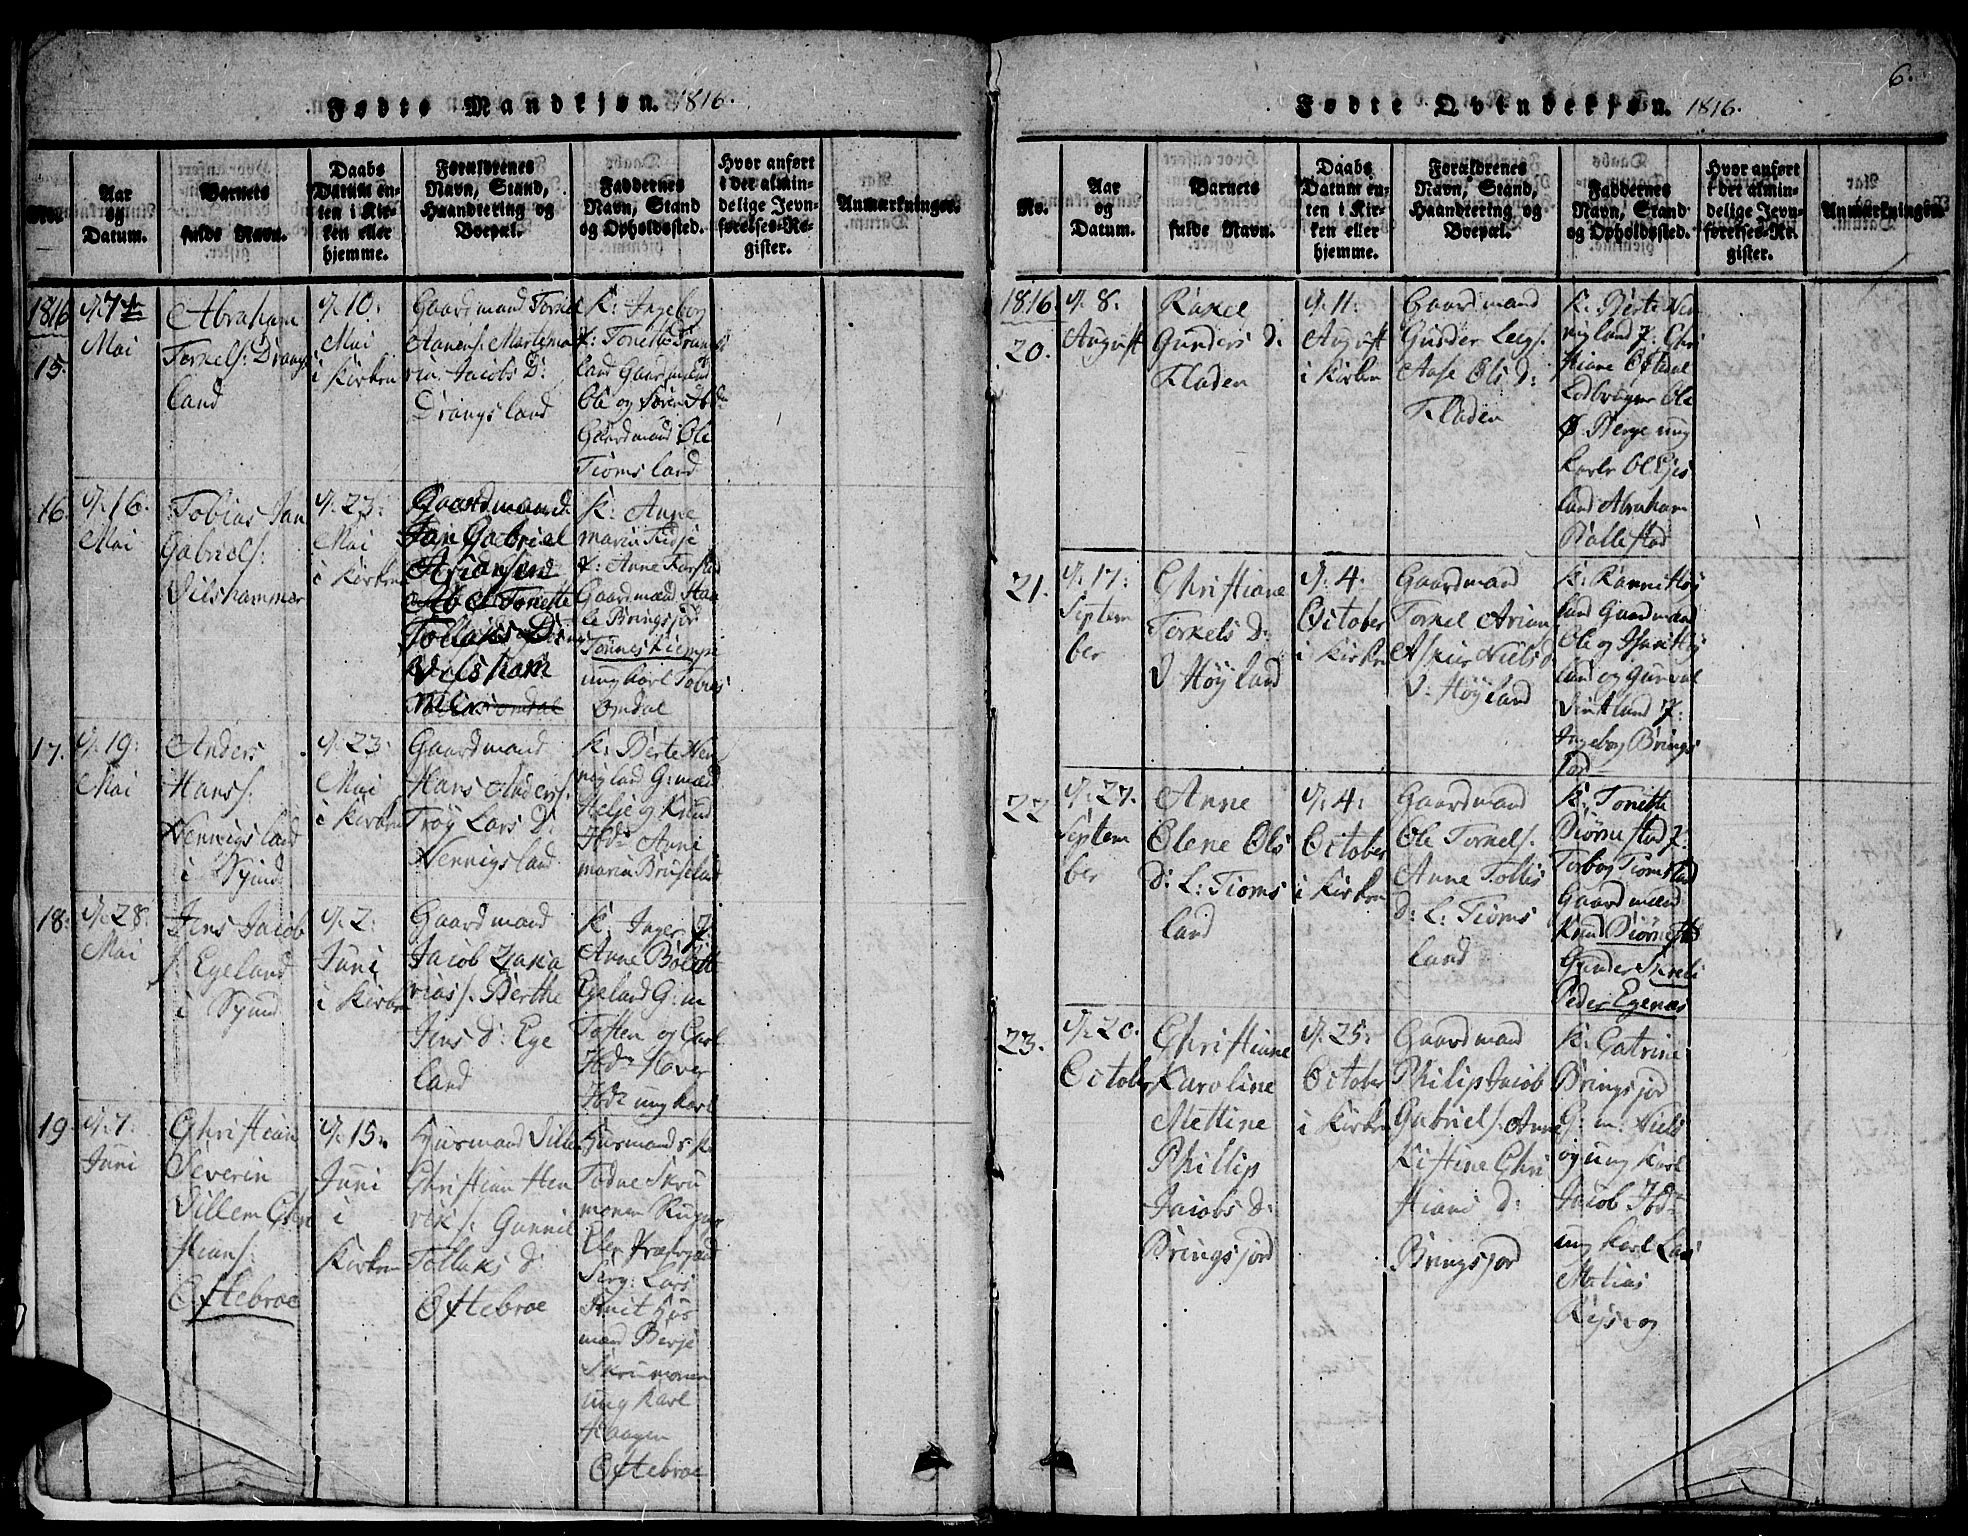 6.
Fødte Mandkjøn. 1816.
No.
Aar
og
Datum.
Barnets
fulde Navn.
Daabs
Datum en-
ten i Kir-
ken eller
hjemme.
Forældrenes
Navn, Stand,
Haandtering og
Boepæl.
Faddernes
Navn, Stand
og Opholdssted.
Hvor anført
i det almin-
delige Jevn-
førelses-Re-
gister.
Anmærkninger.
1816
15.
d. 7de
Mai
Abraham
Torkels: Drangs
land
d. 10:
Mai
i Kirken
Gaardmand Torkel
Jacobs D:
Drangsland
K: Ingebor
land Gaardmænd
Ole og Søren Ibdm
Gaardmand Ole
Tiomsland
16.
d. 16.
Mai
Tobias Jan
Gabriels:
Vilshammer
d. 23:
Mai
i Kirken
Gaardmand
Jan Gabriel
Tollaks D:
Vilsham
mer
K: Anne
marin
Gaardmænd
le Bringsjor
ung karl Tobias
Omdal
17.
d. 19:
Mai
Anders
Hans s.
Hennigsland
i Qvind
d. 23:
Mai
i Kirken
Gaardmand
Hans Anders s.
Trøy Lars D:
Hennigsland
K: Berte Hen
nigland G: mæd
Helje og Knud
Ibdm Anne
marin
18:
d. 28:
Mai
Jens Jacob
s: Egeland
i Qvind
d. 2:
Juni
i Kirken
Gaardmand
Jacob Zaka
rias s. Berthe
Jens d: Ege
land
K: Inger J:
Anne
Egeland G: m
Tosten og Carl
Ibdm Haver
Ibdm ung karl
19
d. 7:
Juni
Christian
Severin
Villem Chri
stians:
Oftebroe
d. 15:
Juni
i
Kirken
Huusmand Ville
Christian Hen
rik s: Gunnil
Tollaks d:
Oftebroe
Huusmands K
Todne Skru
monen
Lars
Huus
mand Berje
Skrumonen
ung karl
Haagen
Oftebroe
Fødte Qvindekjøn. 1816.
No.
Aar
og
Datum.
Barnets
fulde Navn.
Daabs
Datum en-
ten i Kir-
ken eller
hjemme.
Forældrenes
Navn, Stand,
Haandtering og
Boepæl.
Faddernes
Navn, Stand
og Opholdssted.
Hvor anført
i det almin-
delige Jevn-
førelses-Re-
gister.
Anmærkninger.
1816.
20.
d. 8.
August
Rakel
Gunders d:
Fladen
d. 11.
August
i Kirken
Gaardmand
Gunder
Aase Ols d:
Fladen
K: Berte Hen
nigland J: Chri
stiane
Ole
Berge ung
Karle
land Abraham
Ballestad
21.
d. 17:
Septem
ber
Christiane
Torkels d:
V: Høyland
d. 4.
October
i Kirken
Gaardmand
Torkel
Niels d
V: Høyland
K: Ranni Høy
land Gaardmænd
Ole og
land og Gunval
J:
Ingebor Brings
jor
22
d. 27.
Septem
ber
Anne
Olene Ols
d: L: Tioms
land
d. 4:
October
i Kirken
Gaardmand
Ole Torkels.
Anne
d: L: Tioms
land
K: Tonette
Biørnestad J:
Torbor Tiomsland
Gaardmænd
Knud Biørnestad
Gunder
Peder Egenæs
23.
d. 20.
October
Christiane
Karoline
Mettine
Phillip
Jacobs d:
Bringsjord
d. 25:
October
i Kirken
Gaardmand
Philip Jacob
Gabriels. Anne
Kistine Chri
stians d:
Bringsjord
K: Catrine
Bringsjord
G: m: Niels
og ung Karl
Jacob Ibdm
ung Karl Lars
Matias